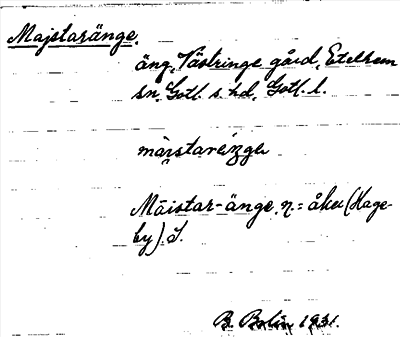 Majstaränge.
äng, Västringe gård, Etelhem
sn, Gotl. s. hd, Gotl. l.
Māistar-änge, n. = åker (Hage-
by). S.
B. Bolin 1931.